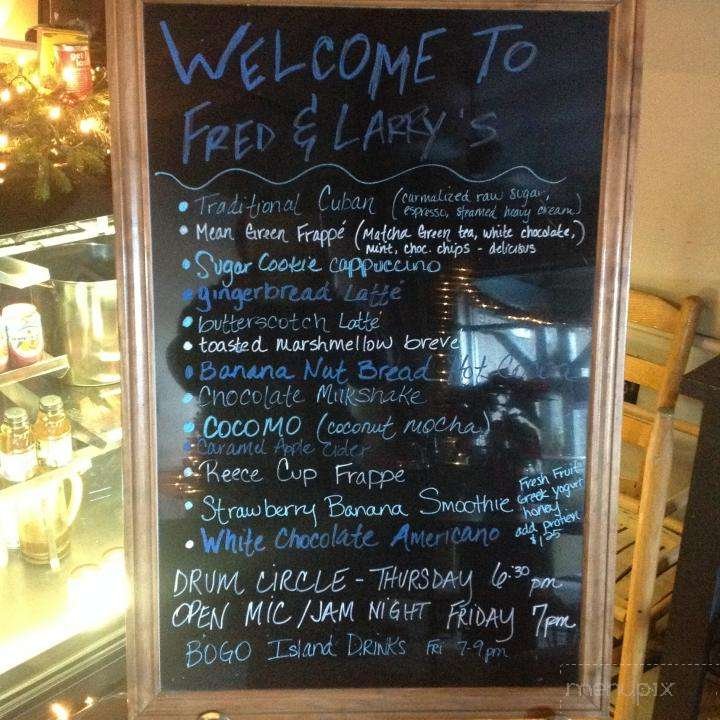 WELCOME TO
FRED & LARRY'S
• Traditional Cuban (carmalized raw sugar,
espresso, steamed heavy cream)
• Mean Green Frappé (Matcha Green tea, white chocolate,)
mint, choc. chips - delicious
• Sugar Cookie cappuccino
• gingerbread Latté
• butterscotch Latté
• toasted marshmellow breve
• Banana Nut Bread Hot
• Chocolate Milkshake
• COCOMO (coconut mocha)
• Caramel Apple Cider
• Reece Cup Frappé
• Strawberry Banana Smoothie
Fresh Fruit
Greek yogurt
honey
add protein
$1.25
• White Chocolate Americano
DRUM CIRCLE - THURSDAY 6:30 pm
OPEN MIC/JAM NIGHT FRIDAY 7pm
BOGO Island DRINKS Fri 7-9pm
menupix